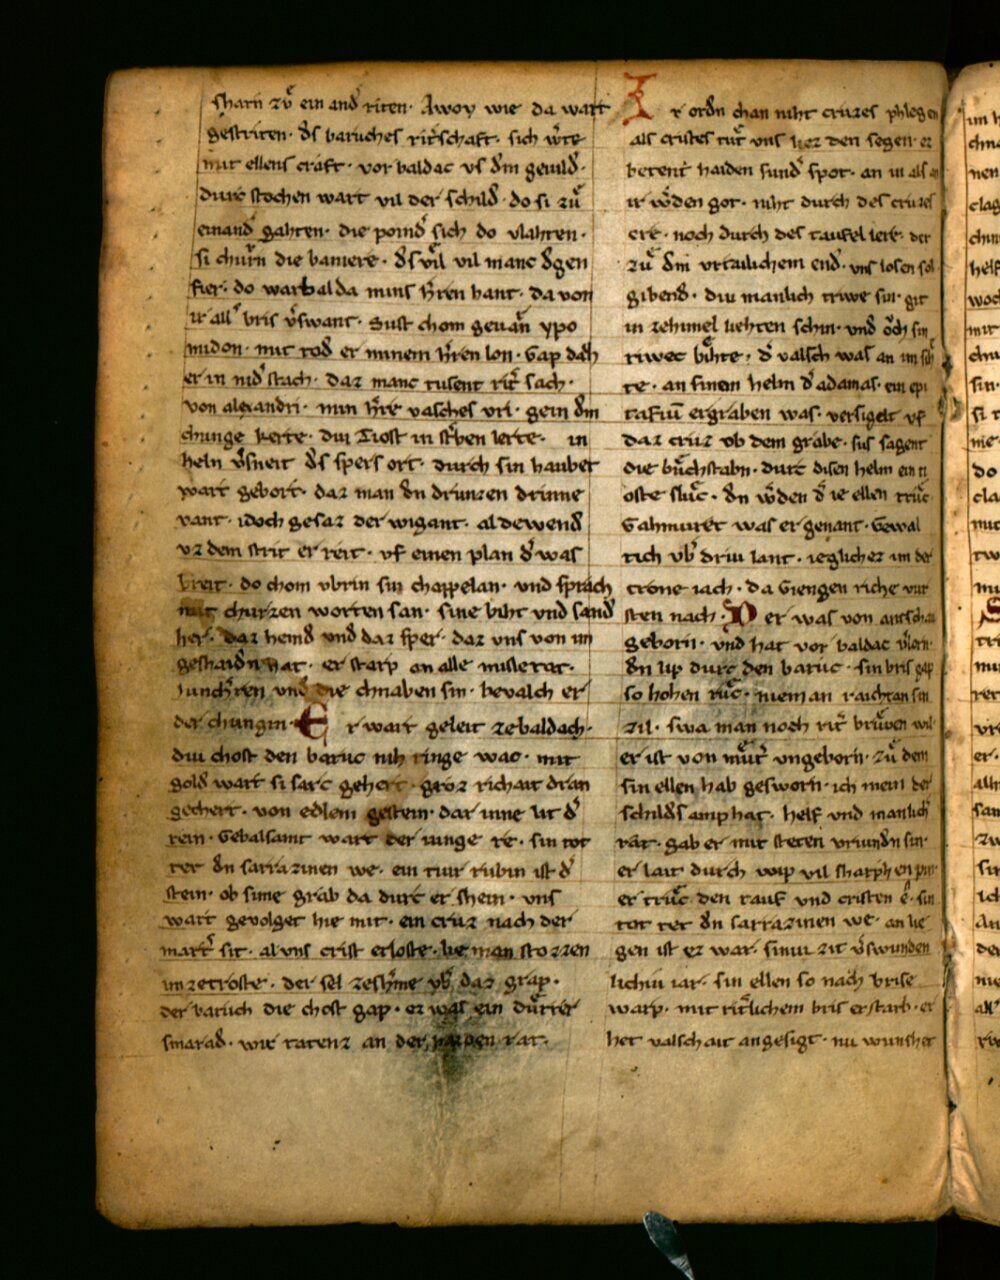 sharn zv̊ ein and͛ riten· Awoy wie da wart
gestriten· d͛s baruches rit͛schaft· sich w͛te
mit ellens craft· vor baldac vf d͛m gevild͛·
durc stochen wart vil der schild͛· do si zv̊
einand͛ gahten· die poind͛ sich do vlahten·
si churn̄ die baniere· d͛s viͤl vil manc d͛gen
fier· do warb alda mins h͛ren hant· da von
ir all͛ bris v͛swant· Sust chom gevarn ypo
midon· mit tod͛ er minem h͛ren lon· Gap daz
er in nid͛ stach· daz manc tusent rit͛ sach·
von alexandri· min h͛re valsches vri· gein d͛m
chunge kerte· div Tiost in st͛ben lerte· in
helm v͛sneit d͛s spers ort· durch sin haubet
wart gebort· daz man d͛n drunzen drinne
vant· idoch gesaz der wigant· al dewend͛
vz dem strit er reit· vf einen plan d͛ was
breit· do chom vbrin sin chappelan· vnd sprach
mit churzen worten san· sine biht vnd sand͛
her· daz hemd͛ vnd daz sper· daz vns von im
geschaid͛n hat· er starp an alle missetat·
Iunch͛ren vnd die chnaben sin· bevalch er
der chungin· Er wart geleit ze baldach·
diu chost den baruc nih ringe wac· mit
gold͛ wart si sarc gehert· groz richait dran
gechert· von edlem gestein· dar inne lit d͛
rein· Gebalsamt wart der iunge re· sin tot
tet d͛n sarrazinen we· ein tiur rubin ist d͛
stein· ob sime grab da durc er shein· vns
wart gevolget hie mit· ein cruz nach der
mart͛ sit· al vns crist erloste· lie man stozzen
im ze troste· der sel ze sh͛me vb͛ daz grap·
der baruch die chost gap· ez was ein durrer
smarad͛· wir tatenz an der haiden rat·
Ir ord͛n chan niht cruzes phlegen
als cristes tut͛ vns liez den segen· ez
betent͛ haiden sund͛ spot· an in als an
ir w͛den got· niht durch des cruzes
ere· noch durch des taufes lere· der
zv̊ d͛m vrtailichem end͛· vns losen sol
gibend͛· diu manlich triwe sin· git
im ze himel liehten schin· vnd och sin
riwec bihte· d͛ valsch was an im sih
te· an sinem helm d͛ adamas· ein epi
tafiū ergraben was· versigelt vf
daz cruz ob dem grabe· sus sagent
die buchstabn· durc disen helm ein ti
oste sluc· d͛n w͛den d͛ ie ellen truc
Gahmuret was er genant· Gewal
tich vb͛ driu lant· ieglich ez im der
crone iach· da Giengen riche vur
sten nach· Der was von anschau
geborn· vnd hat vor baldac v͛lorn·
d͛n lip durc den baruc· sin bris gap
so hohen ruc· nieman raichtan sin
zil· swa man noch rit͛ bruͤven wil·
er ist von mut͛ vngeborn· zv̊ dem
sin ellen hab gesworn· ich mein der
schild͛s amp hat· helf vnd manlich
rat· gab er mit steten vriund͛n sin·
er lait durch wip vil sharphen pin·
er truc den tauf vnd cristen e· sin
tot tet d͛n sarrazinen we· an lie
gen ist ez war· sinui zit v͛swunden
lichiu iar· sin ellen so nach brise
warp· mit rit͛lichem bris er starb· er
het valschait angesigt· nu wunshet